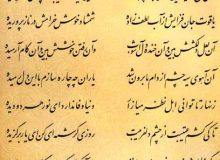 یاقوت جان فزایش از آب لطف زاده شمشاد خوش خرامش در ناز پروریده
آن لعل دلکشش بین وآن خنده دل آشوب وآن رفتن خوشش بین وآن گام آرمیده
آن آهوی سیه چشم از دام ما برون شد یاران چه چاره سازم با این دل رمیده
زنهار تا توانی اهل نظر میازار دنیا وفا ندارد ای نور هر دو دیده
تا کی کشم عتیبت از چشم دلفریبت روزی کرشمه ای کن ای یار برگزیده